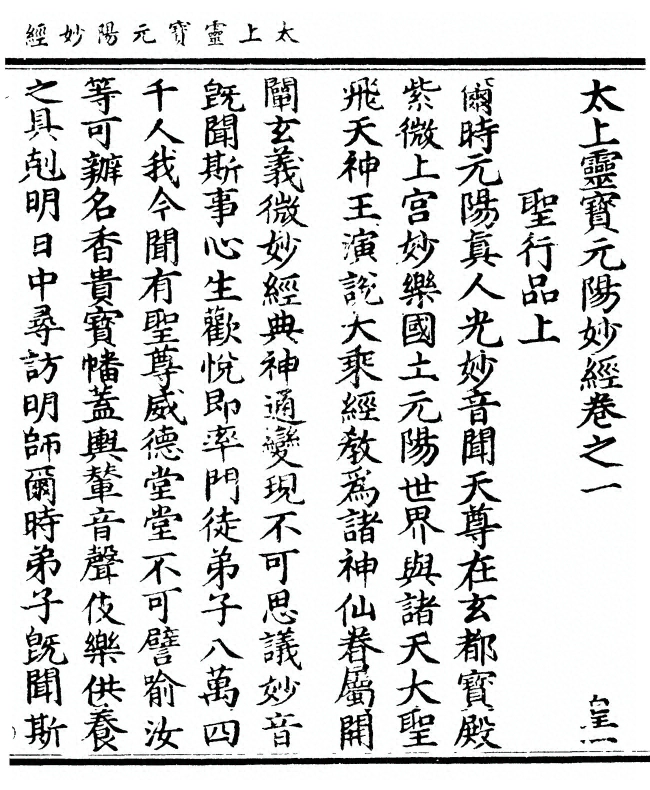 太上靈寶元陽妙經
太上靈寶元陽妙經卷之一 皇一
聖行品上
爾時元陽真人光妙音聞天尊在玄都寶殿
紫微上宮妙樂國土元陽世界與諸天大聖
飛天神王演說大乘經教為諸神仙眷屬開
闡玄義微妙經典神通變現不可思議妙音
既聞斯事心生歡悅即率門徒弟子八萬四
千人我今聞有聖尊威德堂堂不可譬喻汝
等可辦名香貴寶幡蓋輿輦音聲伎樂供養
之具剋明日中尋訪明師爾時弟子既聞斯